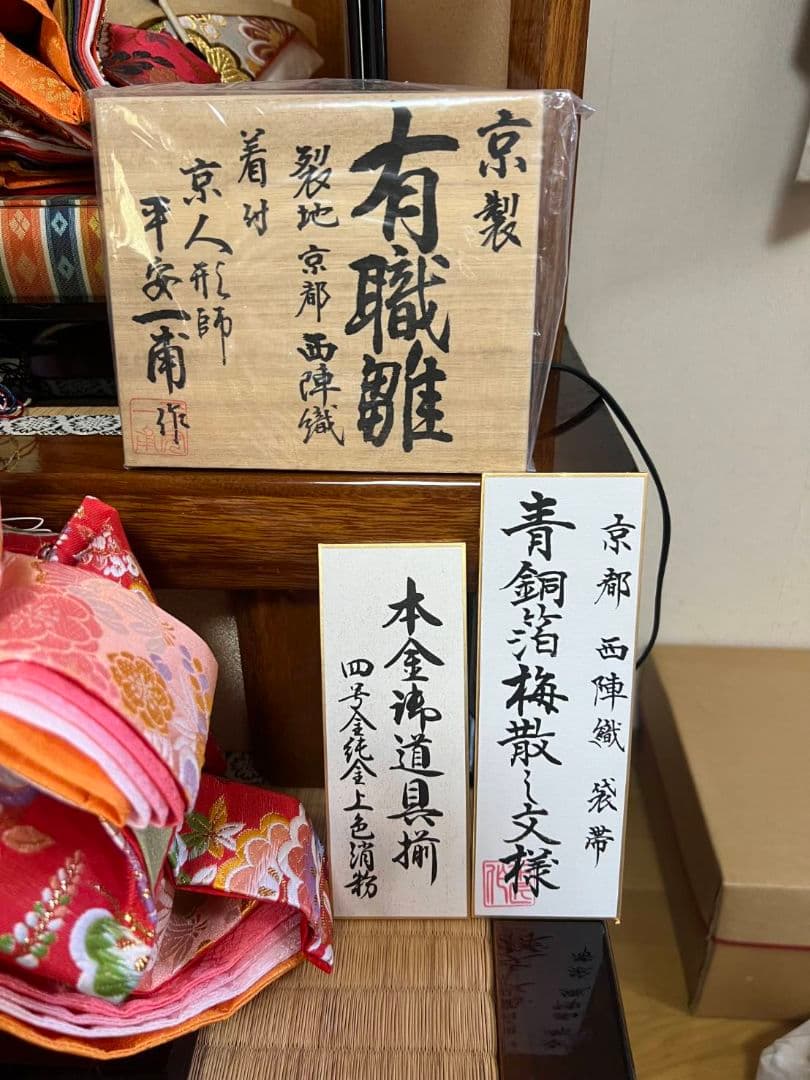 京製
有職雛
裂地 京都 西陣織
着付
京人形師
平安一甫 作
京都 西陣織 袋帯
青銅箔梅散し文様
本金御道具揃
四号金純金上色消粉